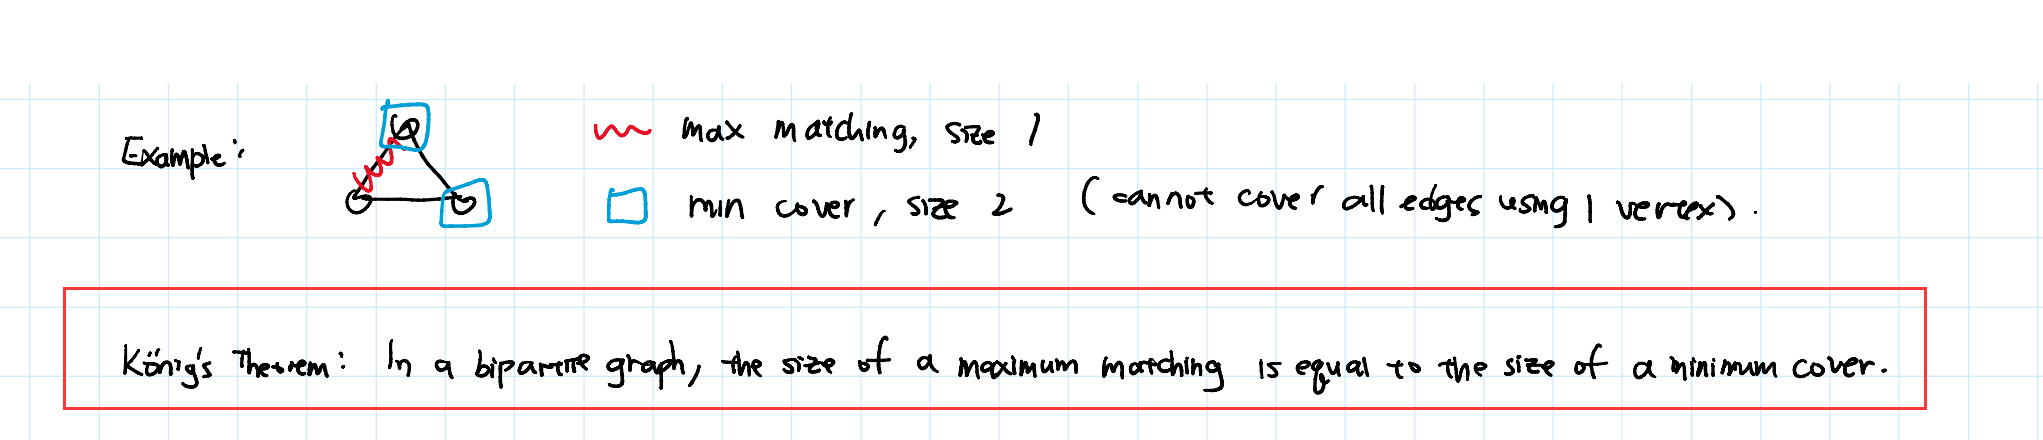 Example:
max matching, size 1
min cover, size 2 (cannot cover all edges using 1 vertex).
König's Theorem: In a bipartite graph, the size of a maximum matching is equal to the size of a minimum cover.